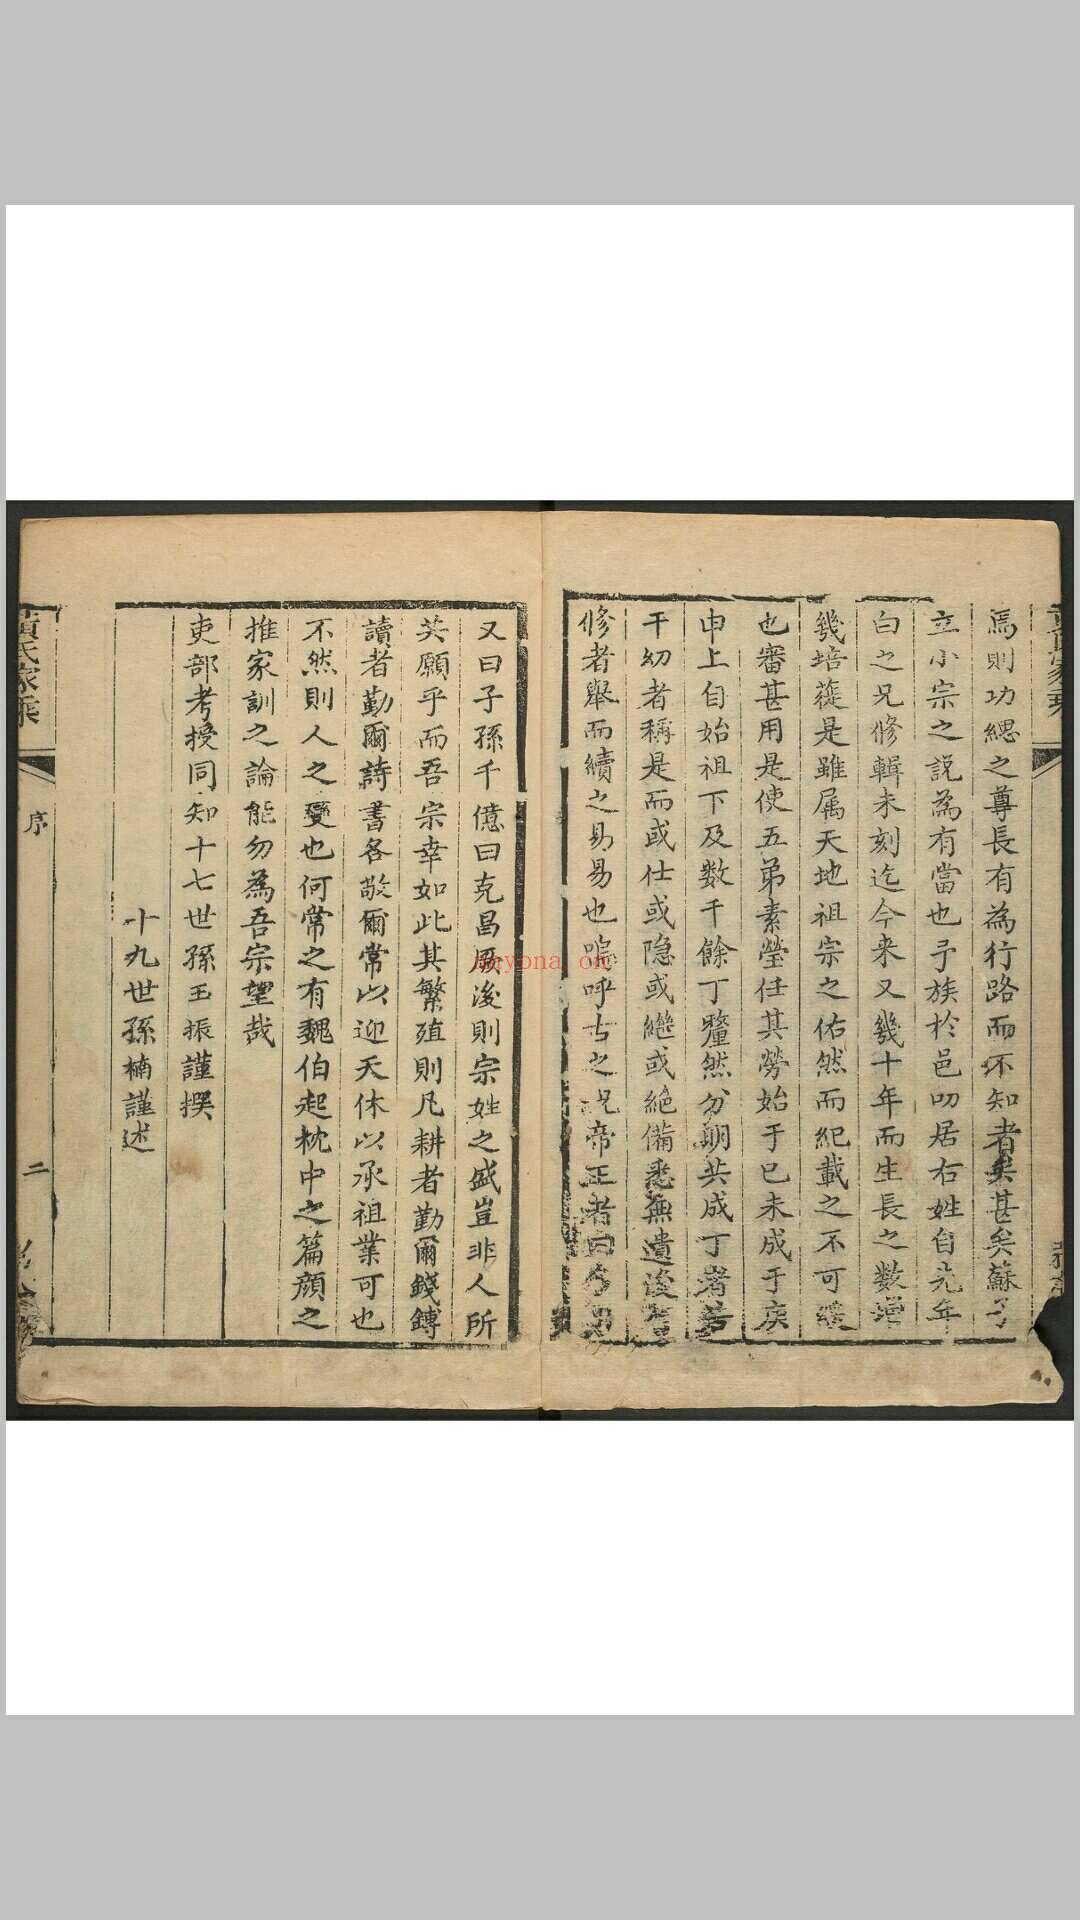 焉則功緦之尊長有為行路而不知者矣甚矣蘇子
立小宗之說為有當也予族於邑叨居右姓自光年
白之兄修輯未刻迄今来又幾十年而生長之數增
幾培蓰是雖属天地祖宗之佑然而紀載之不可緩
也審甚用是使五弟素瑩任其勞始于已未成于庚
申上自始祖下及數千餘丁釐然分朗共成丁者若
干幼者稱是而或仕或隐或繼或絶備悉無遺後有
修者舉而續之易易也嗚呼古之祝帝王者曰多男
又曰子孫千億曰克昌厥後則宗姓之盛豈非人所
芺願乎而吾宗幸如此其繁殖則凡耕者勤爾錢鏄
讀者勤爾詩書各敬爾常以迎天休以承祖業可也
不然則人之變也何常之有魏伯起枕中之篇顔之
推家訓之論能勿為吾宗望哉
吏部考授同知十七世孫玉振謹撰
十九世孫楠謹述
黃氏家乘
序
二